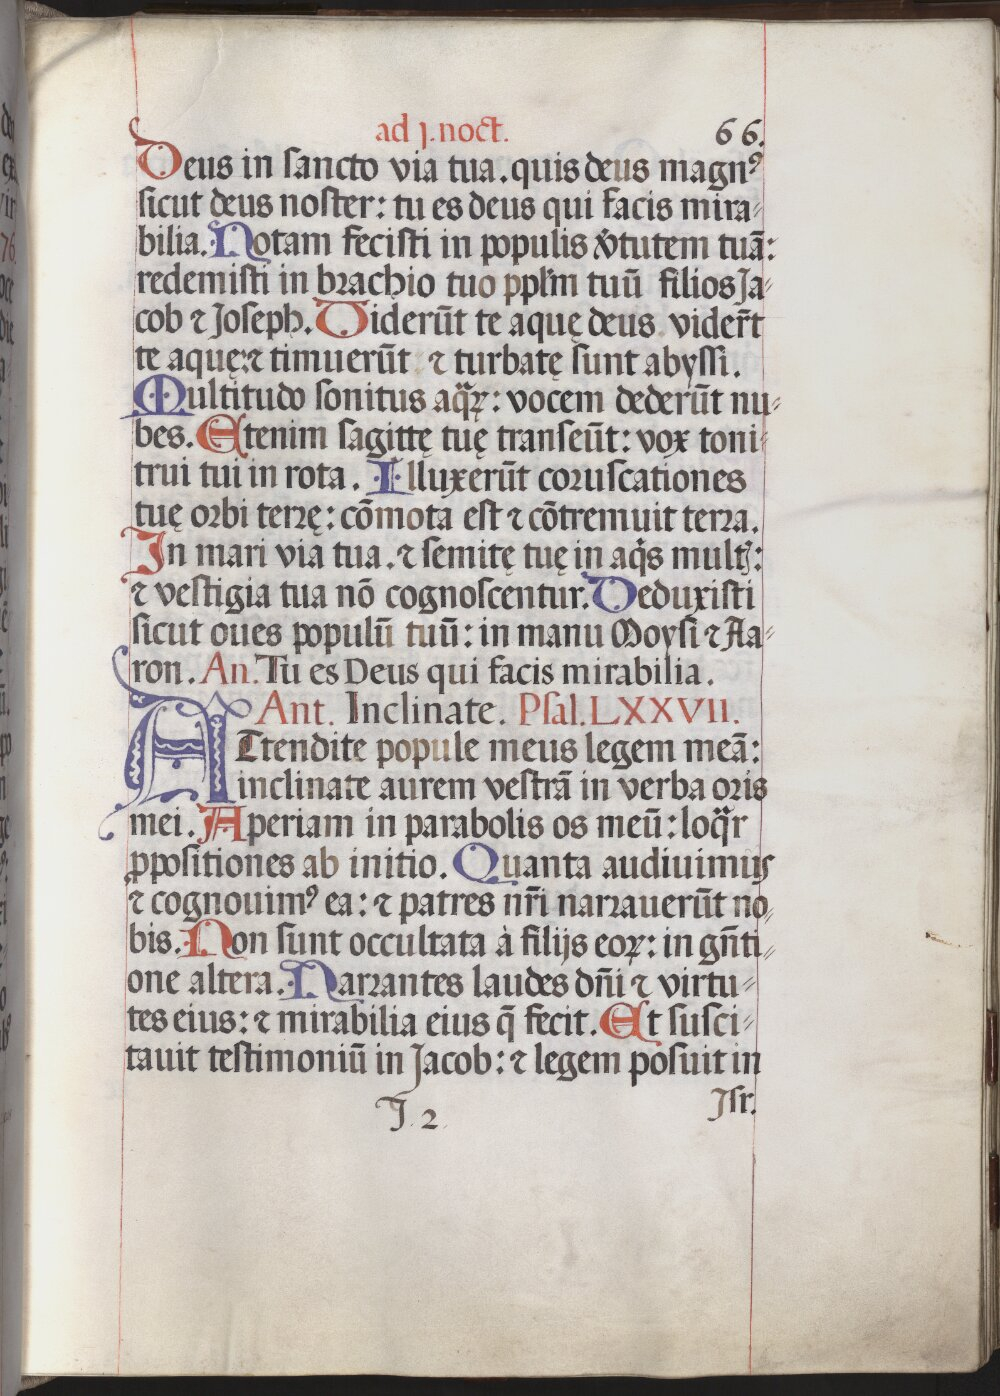 ad j. noct. 66.
Deus in sancto via tua. quis deus magnꝰ
sicut deus noster: tu es deus qui facis mira⸗
bilia. Notam fecisti in populis v̾tutem tuā:
redemisti in brachio tuo ppl̄m tuū filios Ja⸗
cob ⁊ Joseph. Viderūt te aquę deus vider̄t
te aquę: ⁊ timuerūt ⁊ turbatę sunt abyssi.
Multitudo sonitus aq̈ꝝ: vocem dederūt nu⸗
bes. Etenim sagittę tuę transeūt: vox toni⸗
trui tui in rota. Illuxerūt coruscationes
tuę orbi terrę: cōmota est ⁊ cōtremuit terra.
In mari via tua. ⁊ semitę tuę in aq̈s multꝭ:
⁊ vestigia tua nō cognoscentur. Deduxisti
sicut oues populū tuū: in manu Moysi ⁊ Aa⸗
ron. An. Tu es Deus qui facis mirabilia.
Ant. Inclinate. Psal. LXXVII.
ATtendite popule meus legem meā:
inclinate aurem vestrā in verba oris
mei. Aperiam in parabolis os meū: loq̈r
ꝓpositiones ab initio. Quanta audiuimus
⁊ cognouimꝰ ea: ⁊ patres nr̄i narrauerūt no⸗
bis. Non sunt occultata à filijs eoꝝ: in gn̄ti⸗
one altera. Narrantes laudes dn̄i ⁊ virtu⸗
tes eius: ⁊ mirabilia eius q̄ fecit. Et susci⸗
tauit testimoniū in Jacob: ⁊ legem posuit in
J. 2. Jsr.